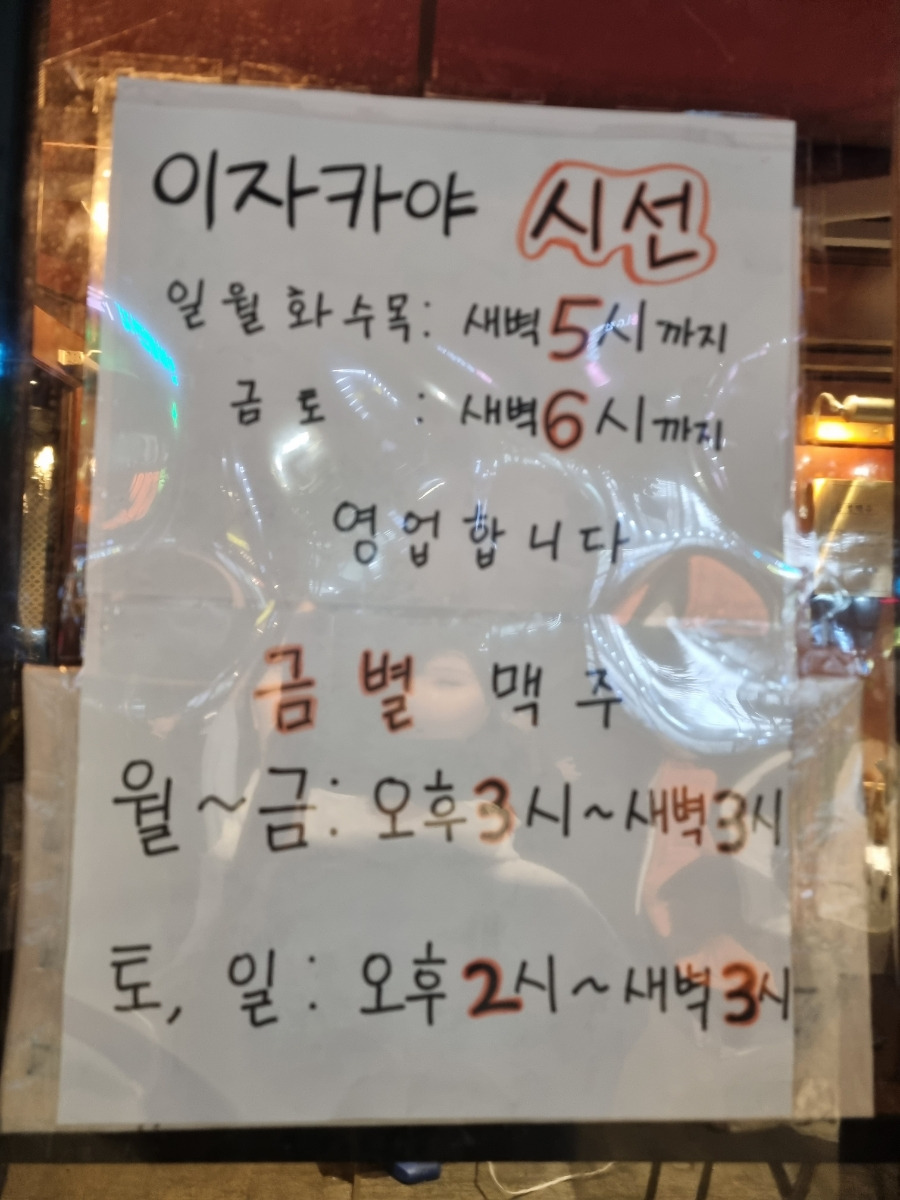 이자카야 시선
일월화수목: 새벽5시까지
금토 : 새벽6시까지
영업합니다
금별 맥주
월~금: 오후3시~새벽3시
토, 일: 오후2시~새벽3시